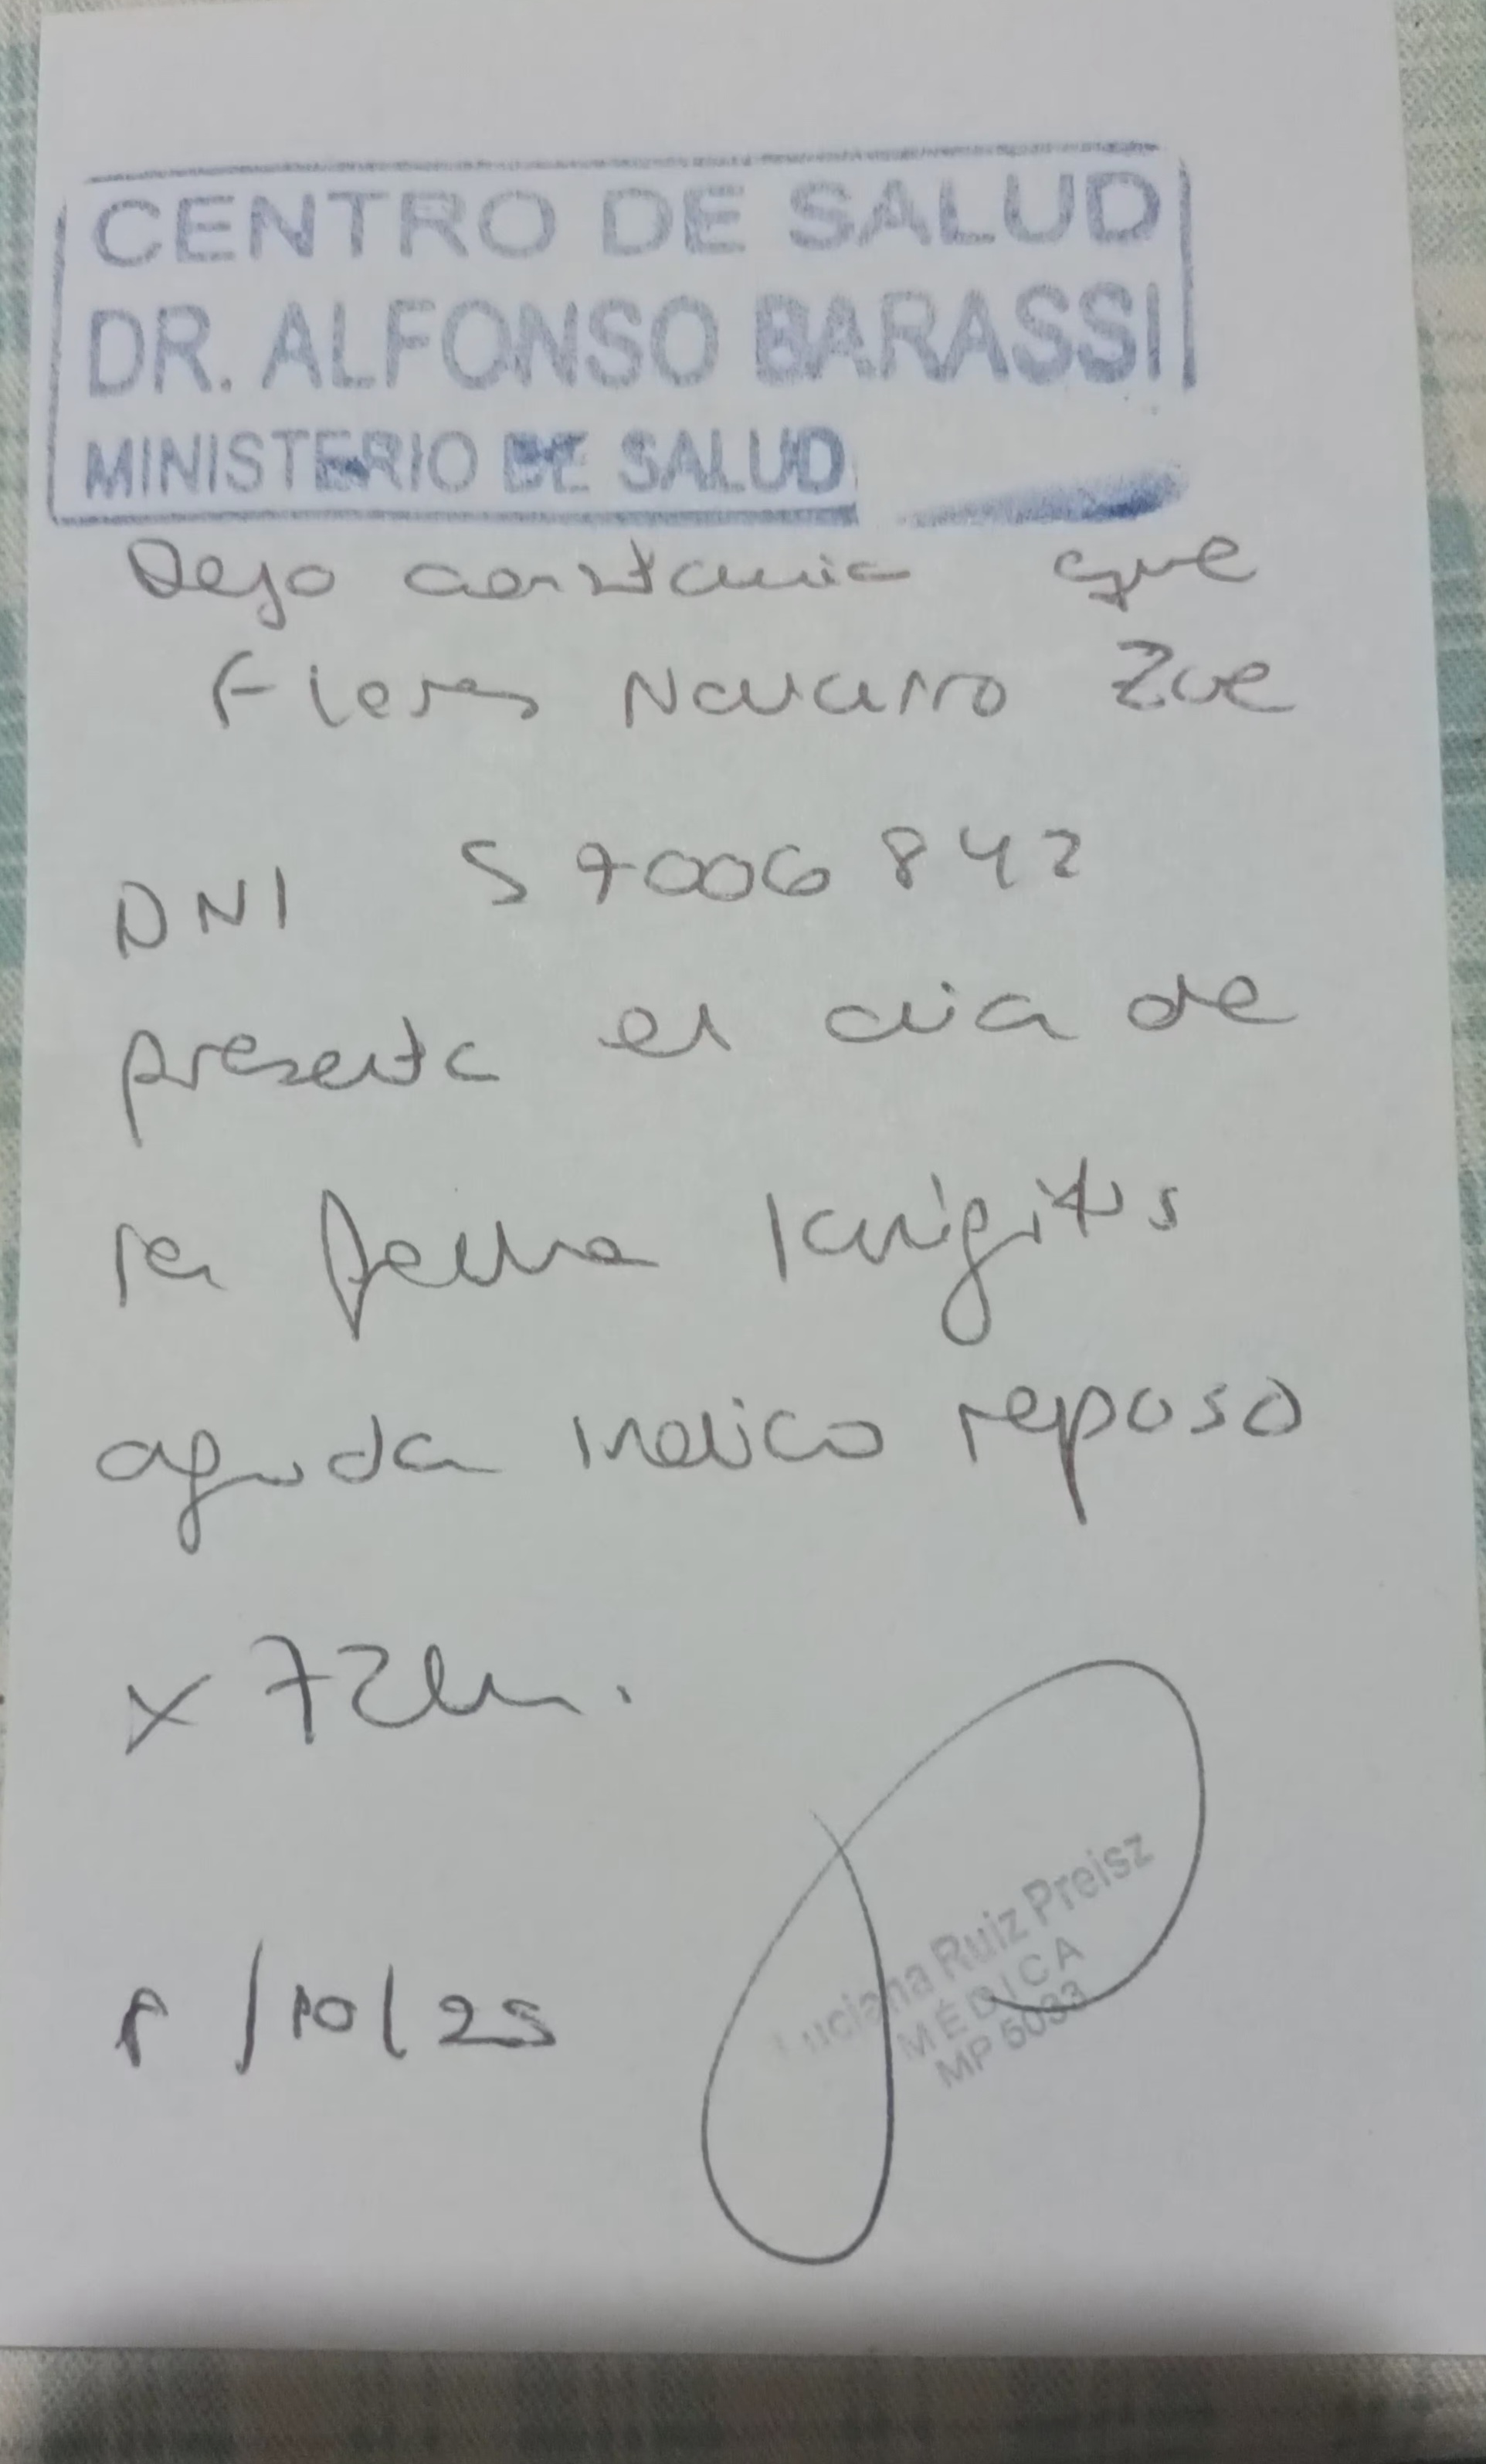 CENTRO DE SALUD
DR. ALFONSO BARASSI
MINISTERIO DE SALUD
Dejo constancia que
Flores Navarro Zoe
DNI 57006842
presenta el dia de
la fecha laringitis
aguda indico reposo
x 72hs.
8/10/25
Luciana Ruiz Preisz
MÉDICA
MP 5033